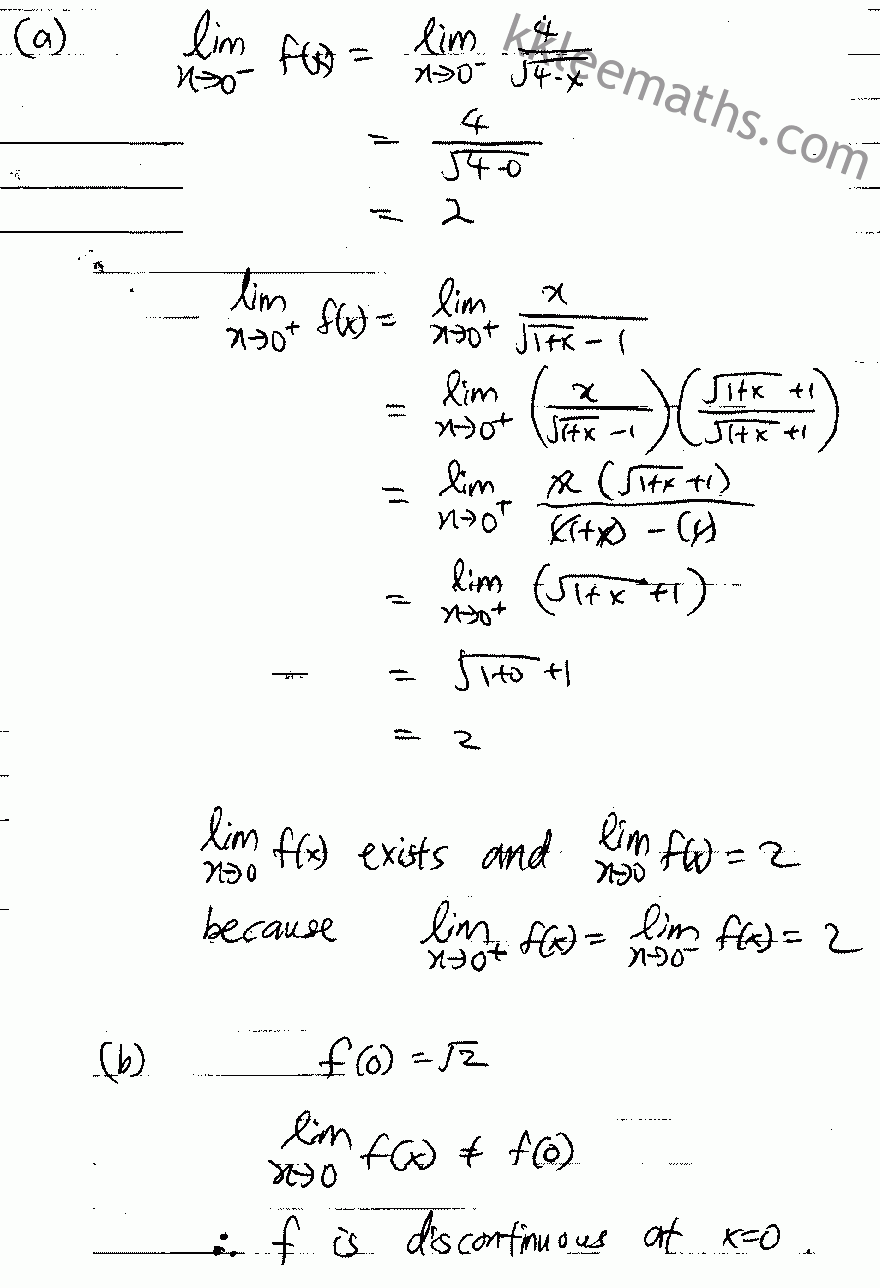 (a) lim x→0⁻ f(x) = lim x→0⁻ 4/√(4-x)
kkleemaths.com
= 4/√(4-0)
= 2
lim x→0⁺ f(x) = lim x→0⁺ x/(√(1+x) - 1)
= lim x→0⁺ (x/(√(1+x) - 1)) · ((√(1+x) + 1)/(√(1+x) + 1))
= lim x→0⁺ x(√(1+x) + 1)/((1+x) - (1))
= lim x→0⁺ (√(1+x) + 1)
= √(1+0) + 1
= 2
lim x→0 f(x) exists and lim x→0 f(x) = 2
because lim x→0⁺ f(x) = lim x→0⁻ f(x) = 2
(b) f(0) = √2
lim x→0 f(x) ≠ f(0)
∴ f is discontinuous at x=0.